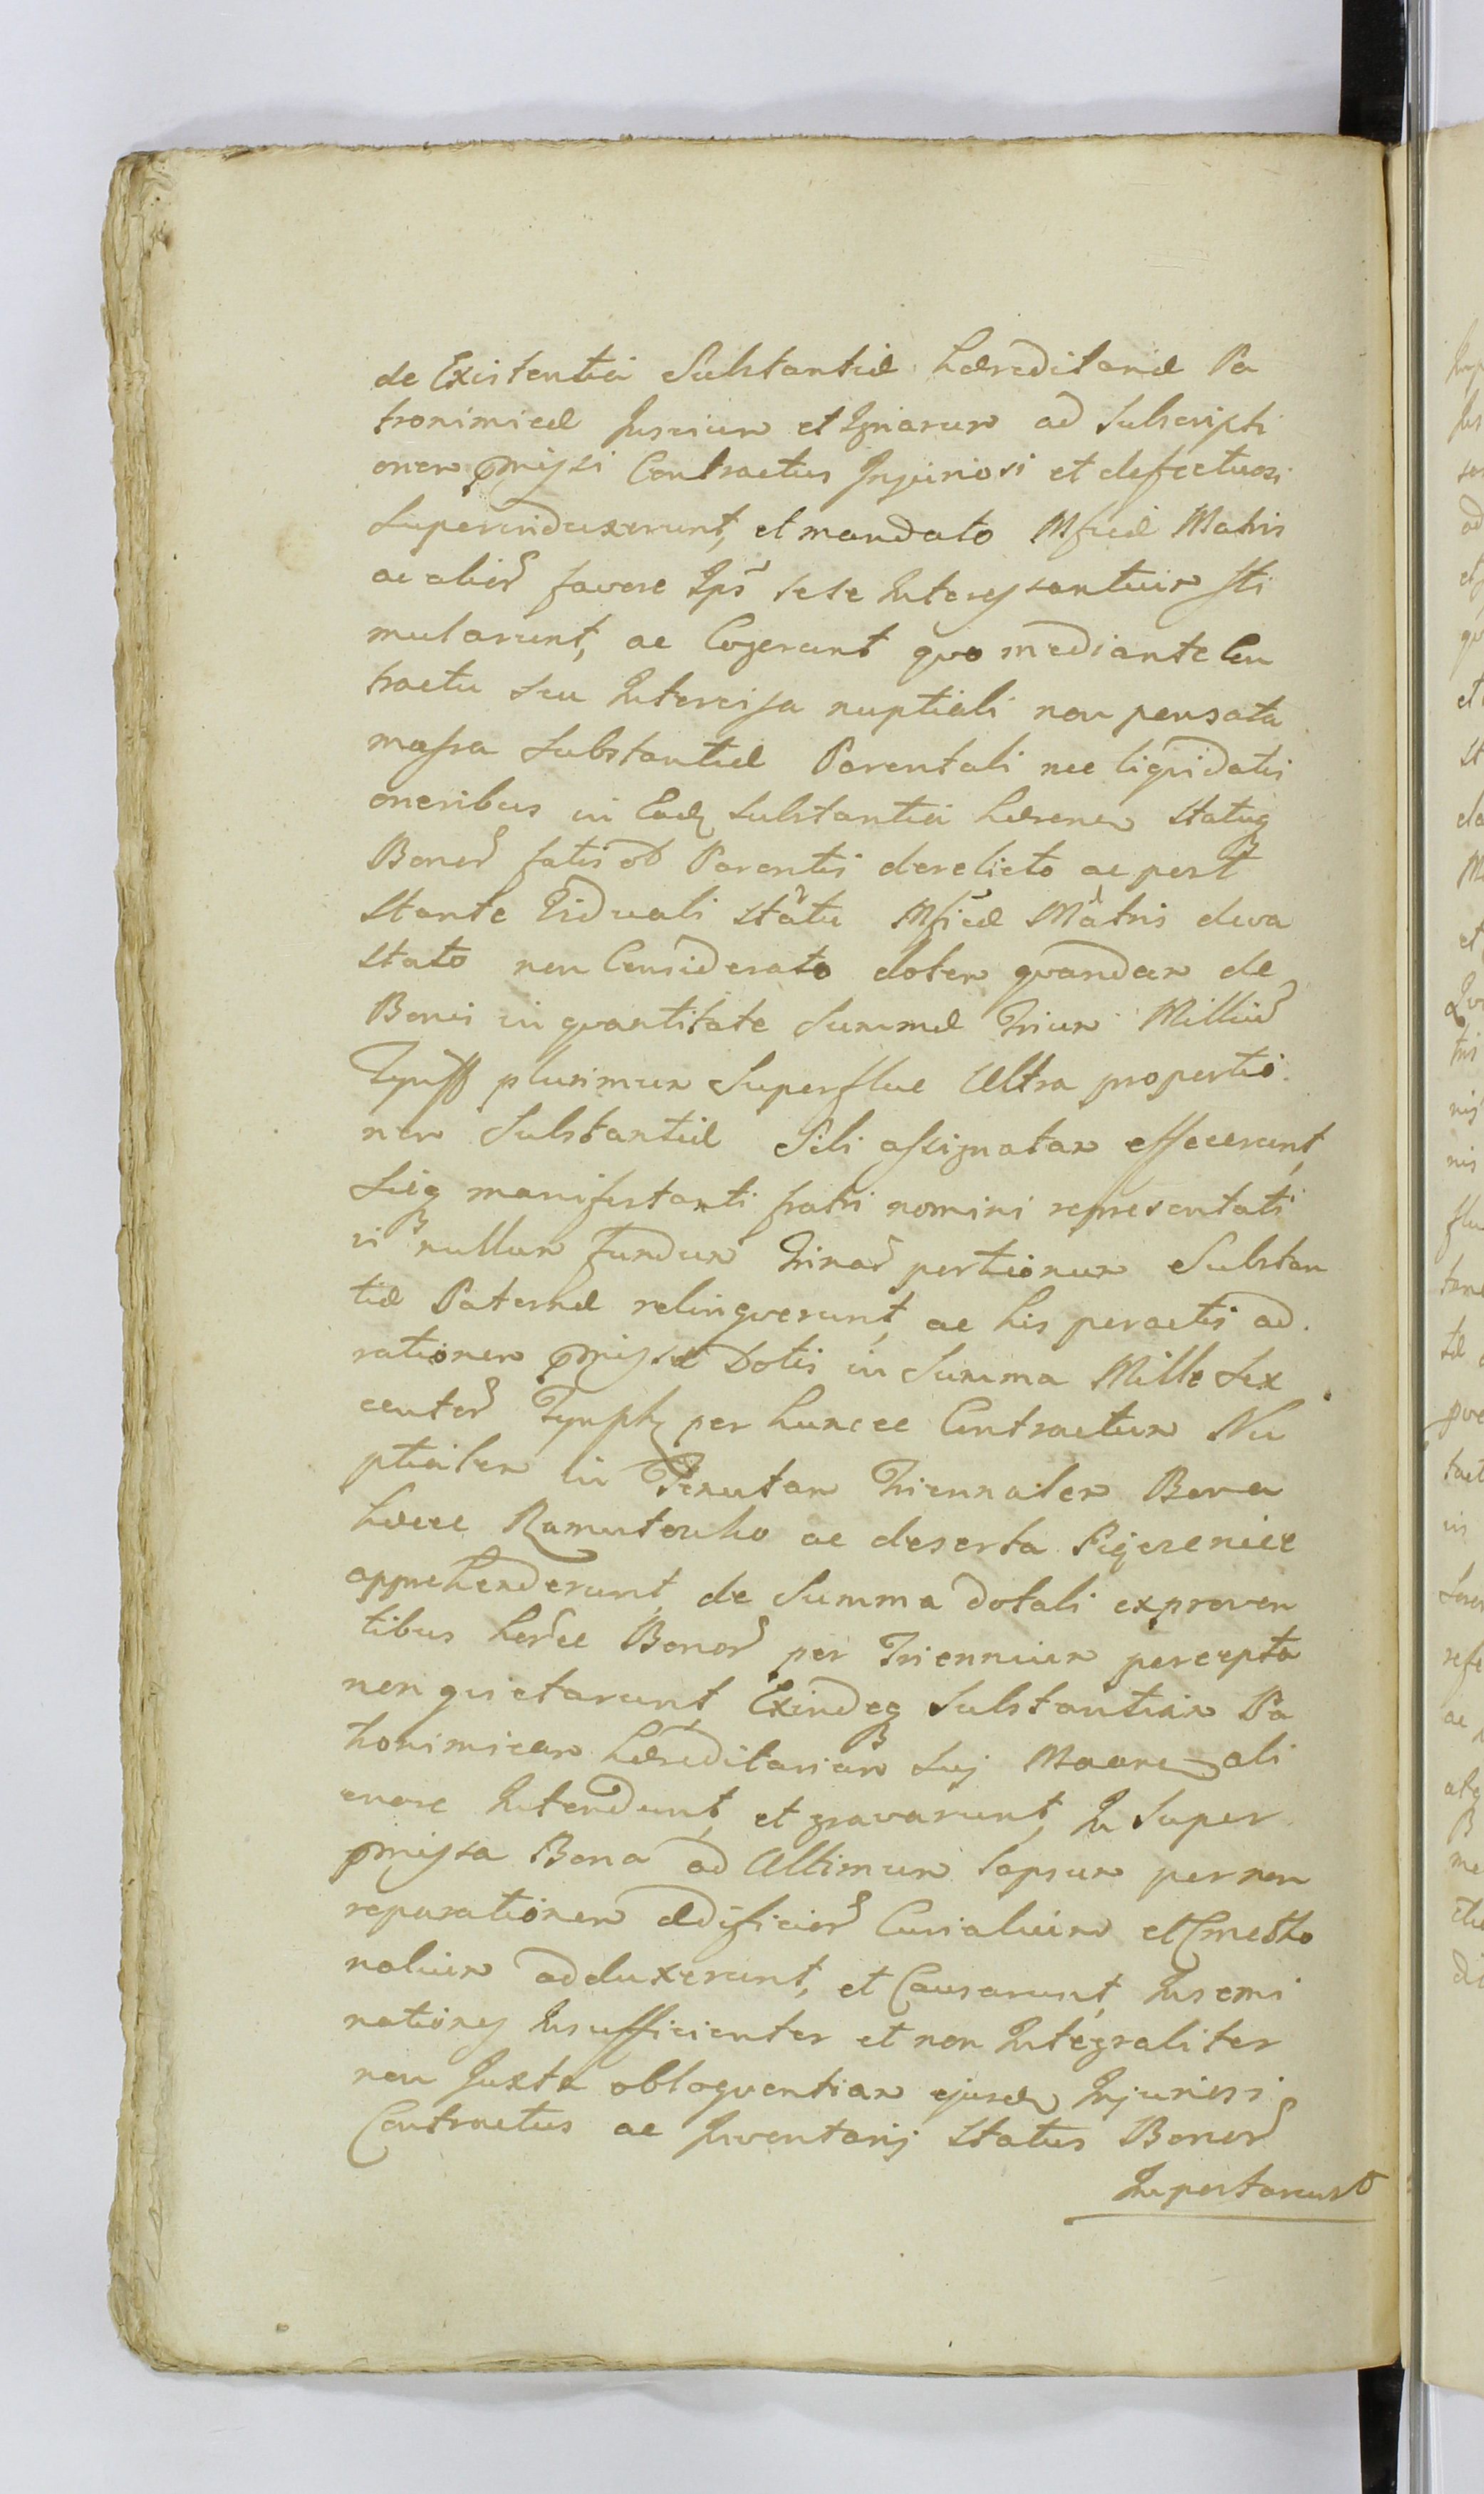 de Existentia Substantiæ hæreditariæ Pa
tronimicæ Inscium et Ignarum ad Subscripti
onem pmissi Contractus Injuriosi et defectuosi
Superinduxerunt, et mandato Mficæ Matris
ac alior favore Ips sese Interessantium sti
mularunt, ac Cogerunt quo mediante Con
tractu seu Intercisa nuptiali non pensata
massa Substantiæ Parentali nec liquidatis
oneribus in Eadq Substantia hæren Statuq
Bonor fatis ob Parentis derelicto ac post
Stante Viduali Statu Mficæ Matris deva
stato non Considerato dotem quandam de
Bonis in quantitate Summæ Trium Milliu
Tynff plurimum Superflue Ultra proportio
nem Substantiæ Sibi assignatam effecerunt,
Sicq manifestanti fratri nomini representati
vi nullum fundum Trinar portionum Substan
tiæ Paternæ relinquerunt, ac his peractis ad
rationem pmissæ Dotis in Summa Mille Sex
centor Tynph per huncce Contractum Nu
ptialem in Tenutam Triennalem Bona
hæcce Ramutowko ac deserta
apprehenderunt, de Summa dotali exproven
tibus horce Bonor per Triennium percepta
non quietarunt, Exindeq Substantiam Pa
tronimicam hæreditariam Suj ali
onere Intendunt, et gravarunt, In Super
pmissa Bona ad Ultimum lapsum per non
reparationem ædificior Curialium et Cmetho
nalium adduxerunt, et Causarunt, Insemi
nationes Insufficienter et non Integraliter
non Juxta obloquentiam ejusd Injuriosi
Contractus ac Inventarij Status Bonor
Importarunt